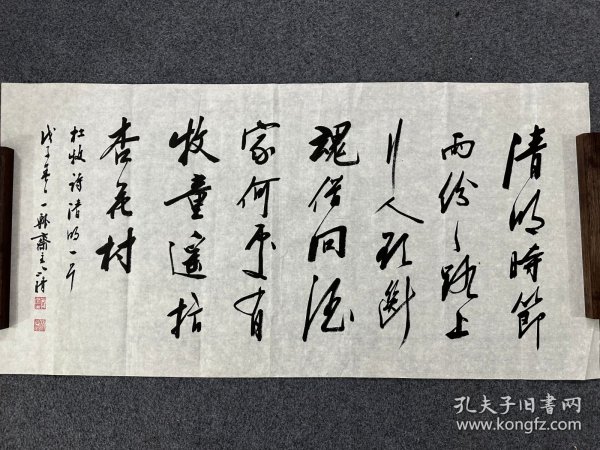 清明時節
雨纷々路上
行人欲斷
魂借问酒
家何處有
牧童遥指
杏花村
杜牧诗清明一
戊子年一齋主
孔夫子旧書网
www.kongfz.com